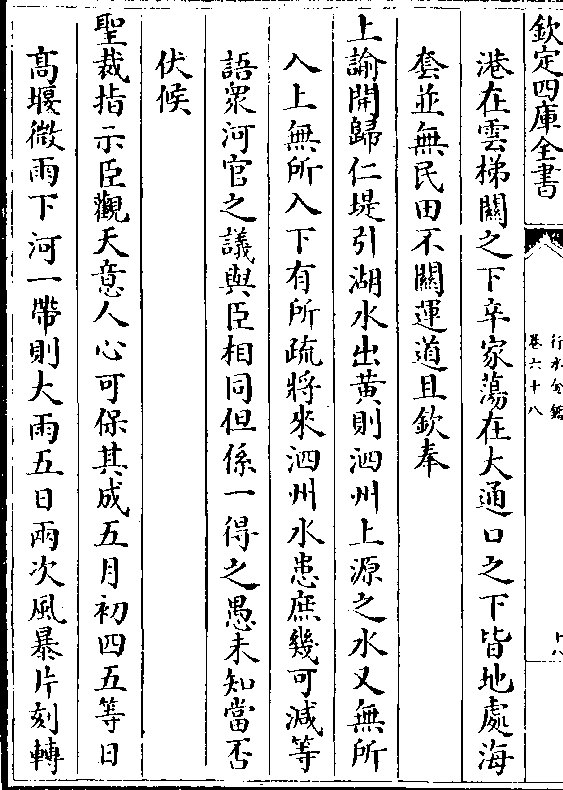 欽定四庫全書
行水金鑑
卷六十八
港在雲梯關之下辛家蕩在大通口之下皆地處海
套並無民田不關運道且欽奉
上諭開歸仁堤引湖水出黃則泗州上源之水又無所
入上無所入下有所疏將來泗州水患庶幾可減等
語衆河官之議與臣相同但係一得之愚未知當否
伏候
聖裁指示臣觀天意人心可保其成五月初四五等日
高堰微雨下河一帶則大雨五日兩次風暴片刻轉